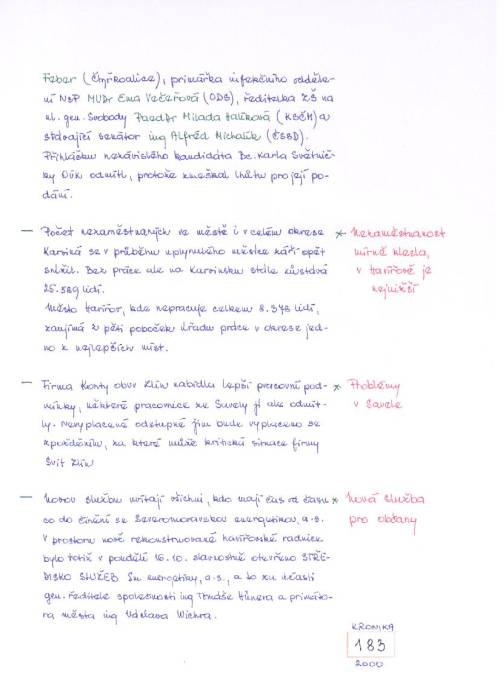 Feber (Čtyřkoalice), primářka infekčního odděle-
ní NsP MUDr Ema Večeřová (ODS), ředitelka ZŠ na
ul. gen. Svobody PaedDr Milada Halíková (KSČM) a
stávající senátor ing Alfréd Michalík (ČSSD).
Přihlášku nezávislého kandidáta Bc. Karla Světnič-
ky OVK odmítl, protože zmeškal lhůtu pro její po-
dání.
— Počet nezaměstnaných ve městě i v celém okrese
Karviná se v průběhu uplynulého měsíce září opět
snížil. Bez práce ale na Karvinsku stále zůstává
25.589 lidí.
Město Havířov, kde nepracuje celkem 8.378 lidí,
zaujímá z pěti poboček úřadu práce v okrese jed-
no z nejlepších míst.
* Nezaměstnanost
mírně klesla,
v Havířově je
nejnižší
— Firma Konty obuv Zlín nabídla lepší pracovní pod-
mínky, některé pracovnice ze Savely jí ale odmít-
ly. Nevyplacené odstupné jim bude vyplaceno se
zpožděním, za které může kritická situace firmy
Svit Zlín
* Problémy
v Savele
— Novou službu uvítají všichni, kdo mají čas od času
co do činění se Severomoravskou energetikou, a.s.
V prostoru nově rekonstruované havířovské radnice
bylo totiž v pondělí 16.10. slavnostně otevřeno STŘE-
DISKO SLUŽEB Sm energetiky, a.s., a to za účasti
gen. ředitele společnosti ing Tomáše Hünera a primáto-
ra města ing Vdslava Wichra.
* Nová služba
pro občany
KRONIKA
183
2000